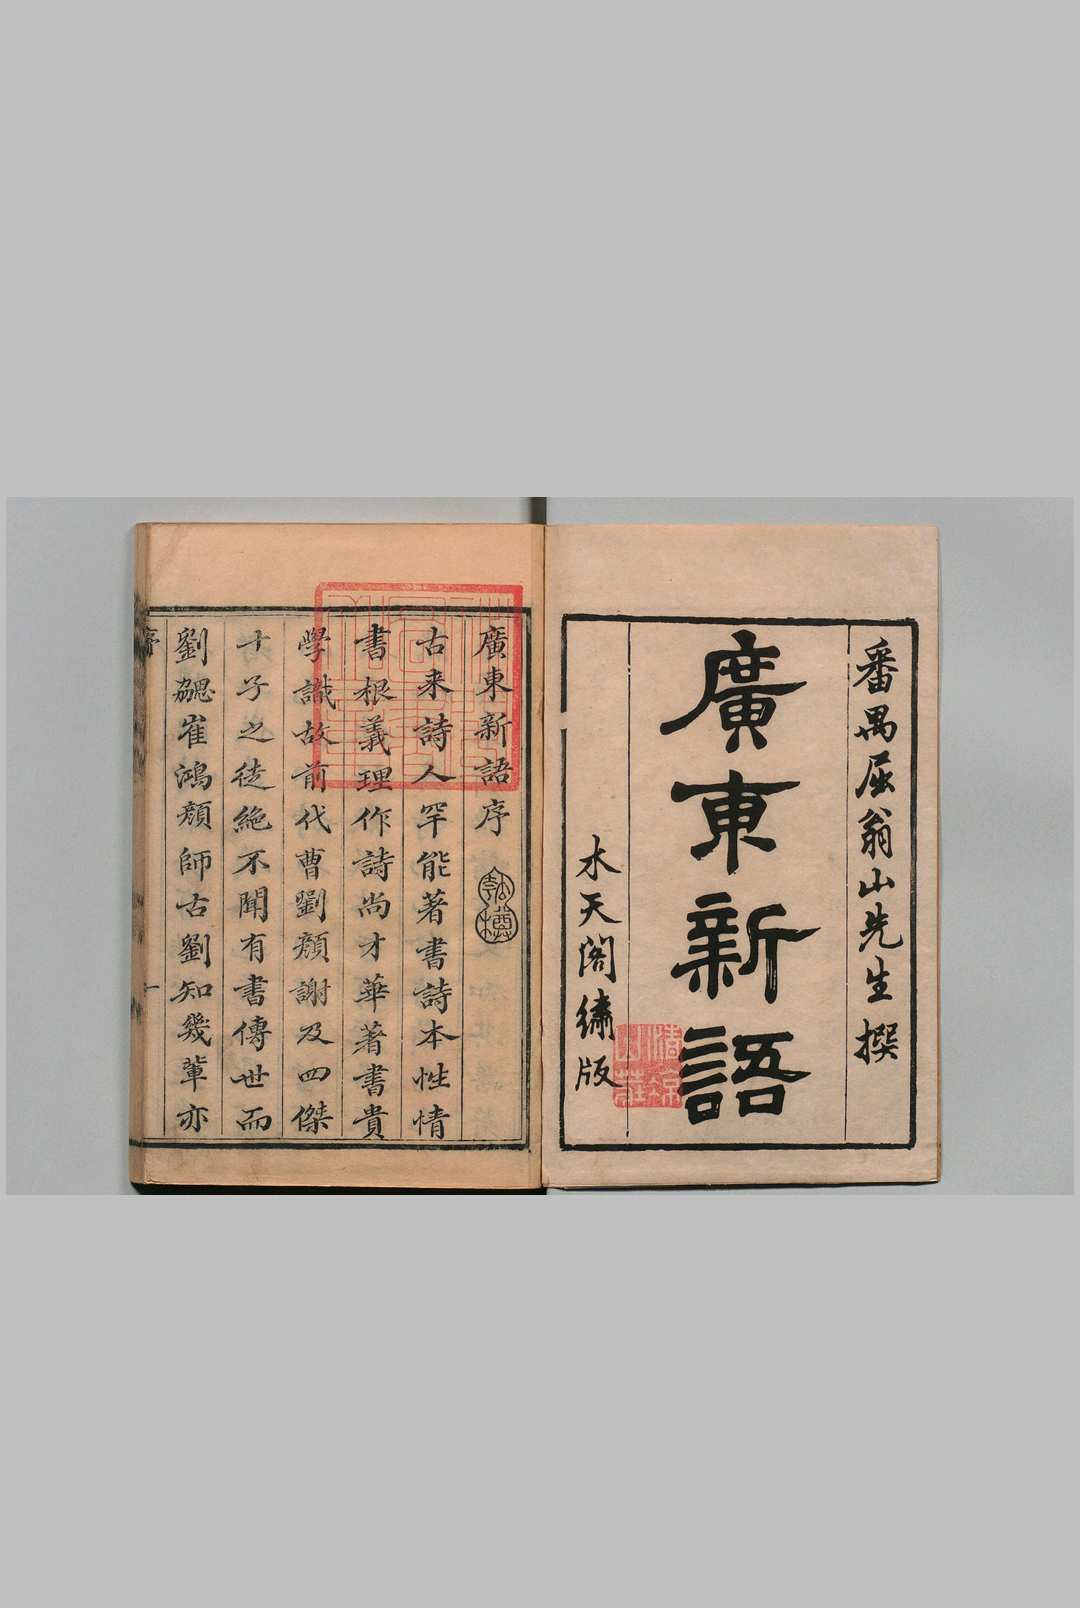 番禺屈翁山先生撰
廣東新語
水天閣繡版
廣東新語序
古来詩人罕能著書詩本性情
書根義理作詩尚才華著書貴
學識故前代曹劉顏謝及四傑
十子之徒絶不聞有書傳世而
劉勰崔鴻顏師古劉知幾輩亦
序
一